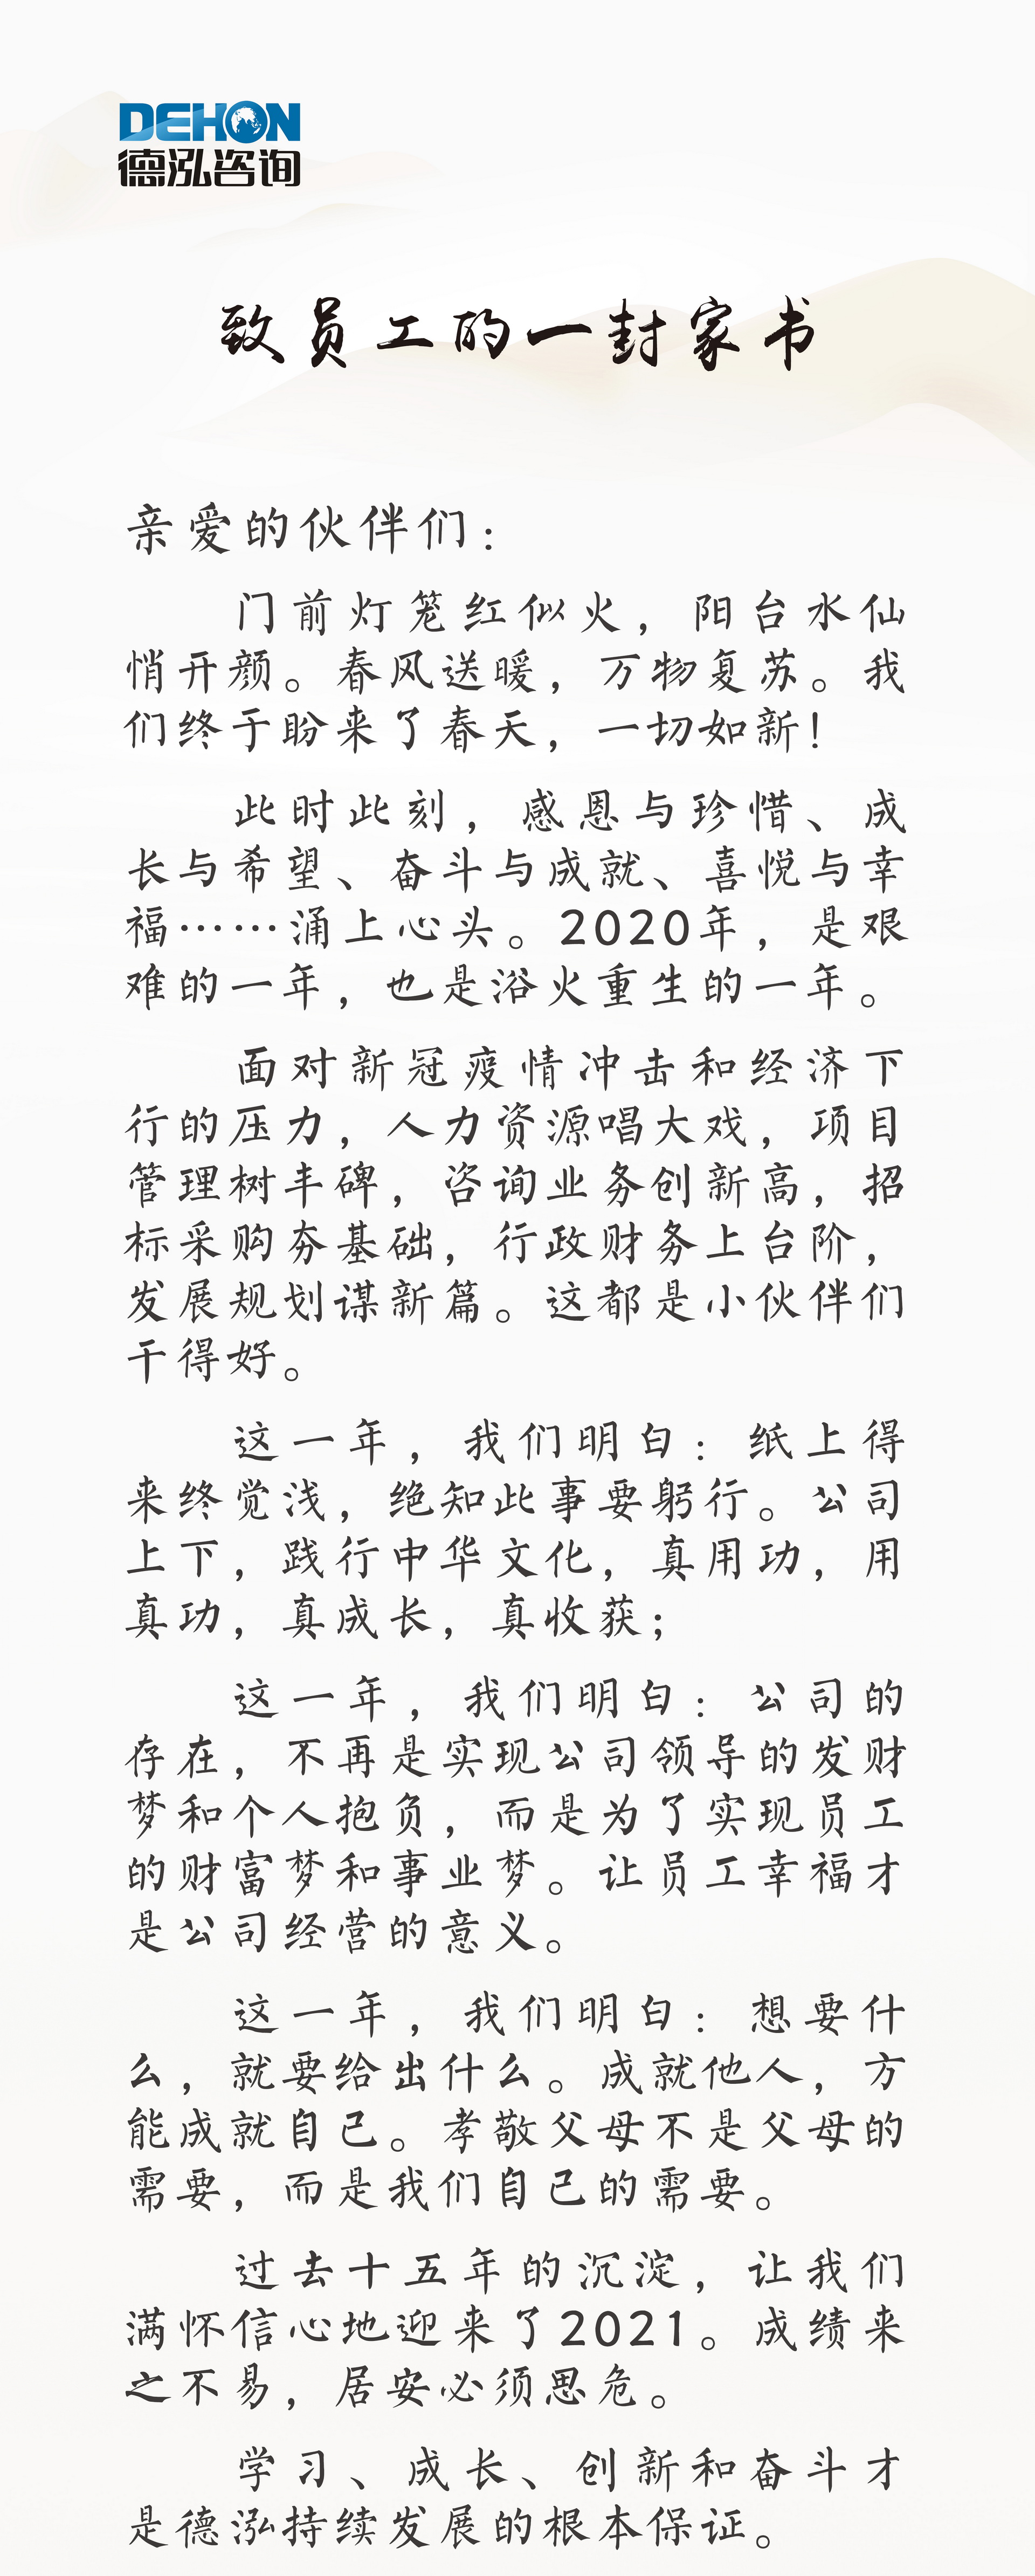 DEHON
德泓咨询
致员工的一封家书
亲爱的伙伴们：
门前灯笼红似火，阳台水仙
悄开颜。春风送暖，万物复苏。我
们终于盼来了春天，一切如新！
此时此刻，感恩与珍惜、成
长与希望、奋斗与成就、喜悦与幸
福……涌上心头。2020年，是艰
难的一年，也是浴火重生的一年。
面对新冠疫情冲击和经济下
行的压力，人力资源唱大戏，项目
管理树丰碑，咨询业务创新高，招
标采购夯基础，行政财务上台阶，
发展规划谋新篇。这都是小伙伴们
干得好。
这一年，我们明白：纸上得
来终觉浅，绝知此事要躬行。公司
上下，践行中华文化，真用功，用
真功，真成长，真收获；
这一年，我们明白：公司的
存在，不再是实现公司领导的发财
梦和个人抱负，而是为了实现员工
的财富梦和事业梦。让员工幸福才
是公司经营的意义。
这一年，我们明白：想要什
么，就要给出什么。成就他人，方
能成就自己。孝敬父母不是父母的
需要，而是我们自己的需要。
过去十五年的沉淀，让我们
满怀信心地迎来了2021。成绩来
之不易，居安必须思危。
学习、成长、创新和奋斗才
是德泓持续发展的根本保证。